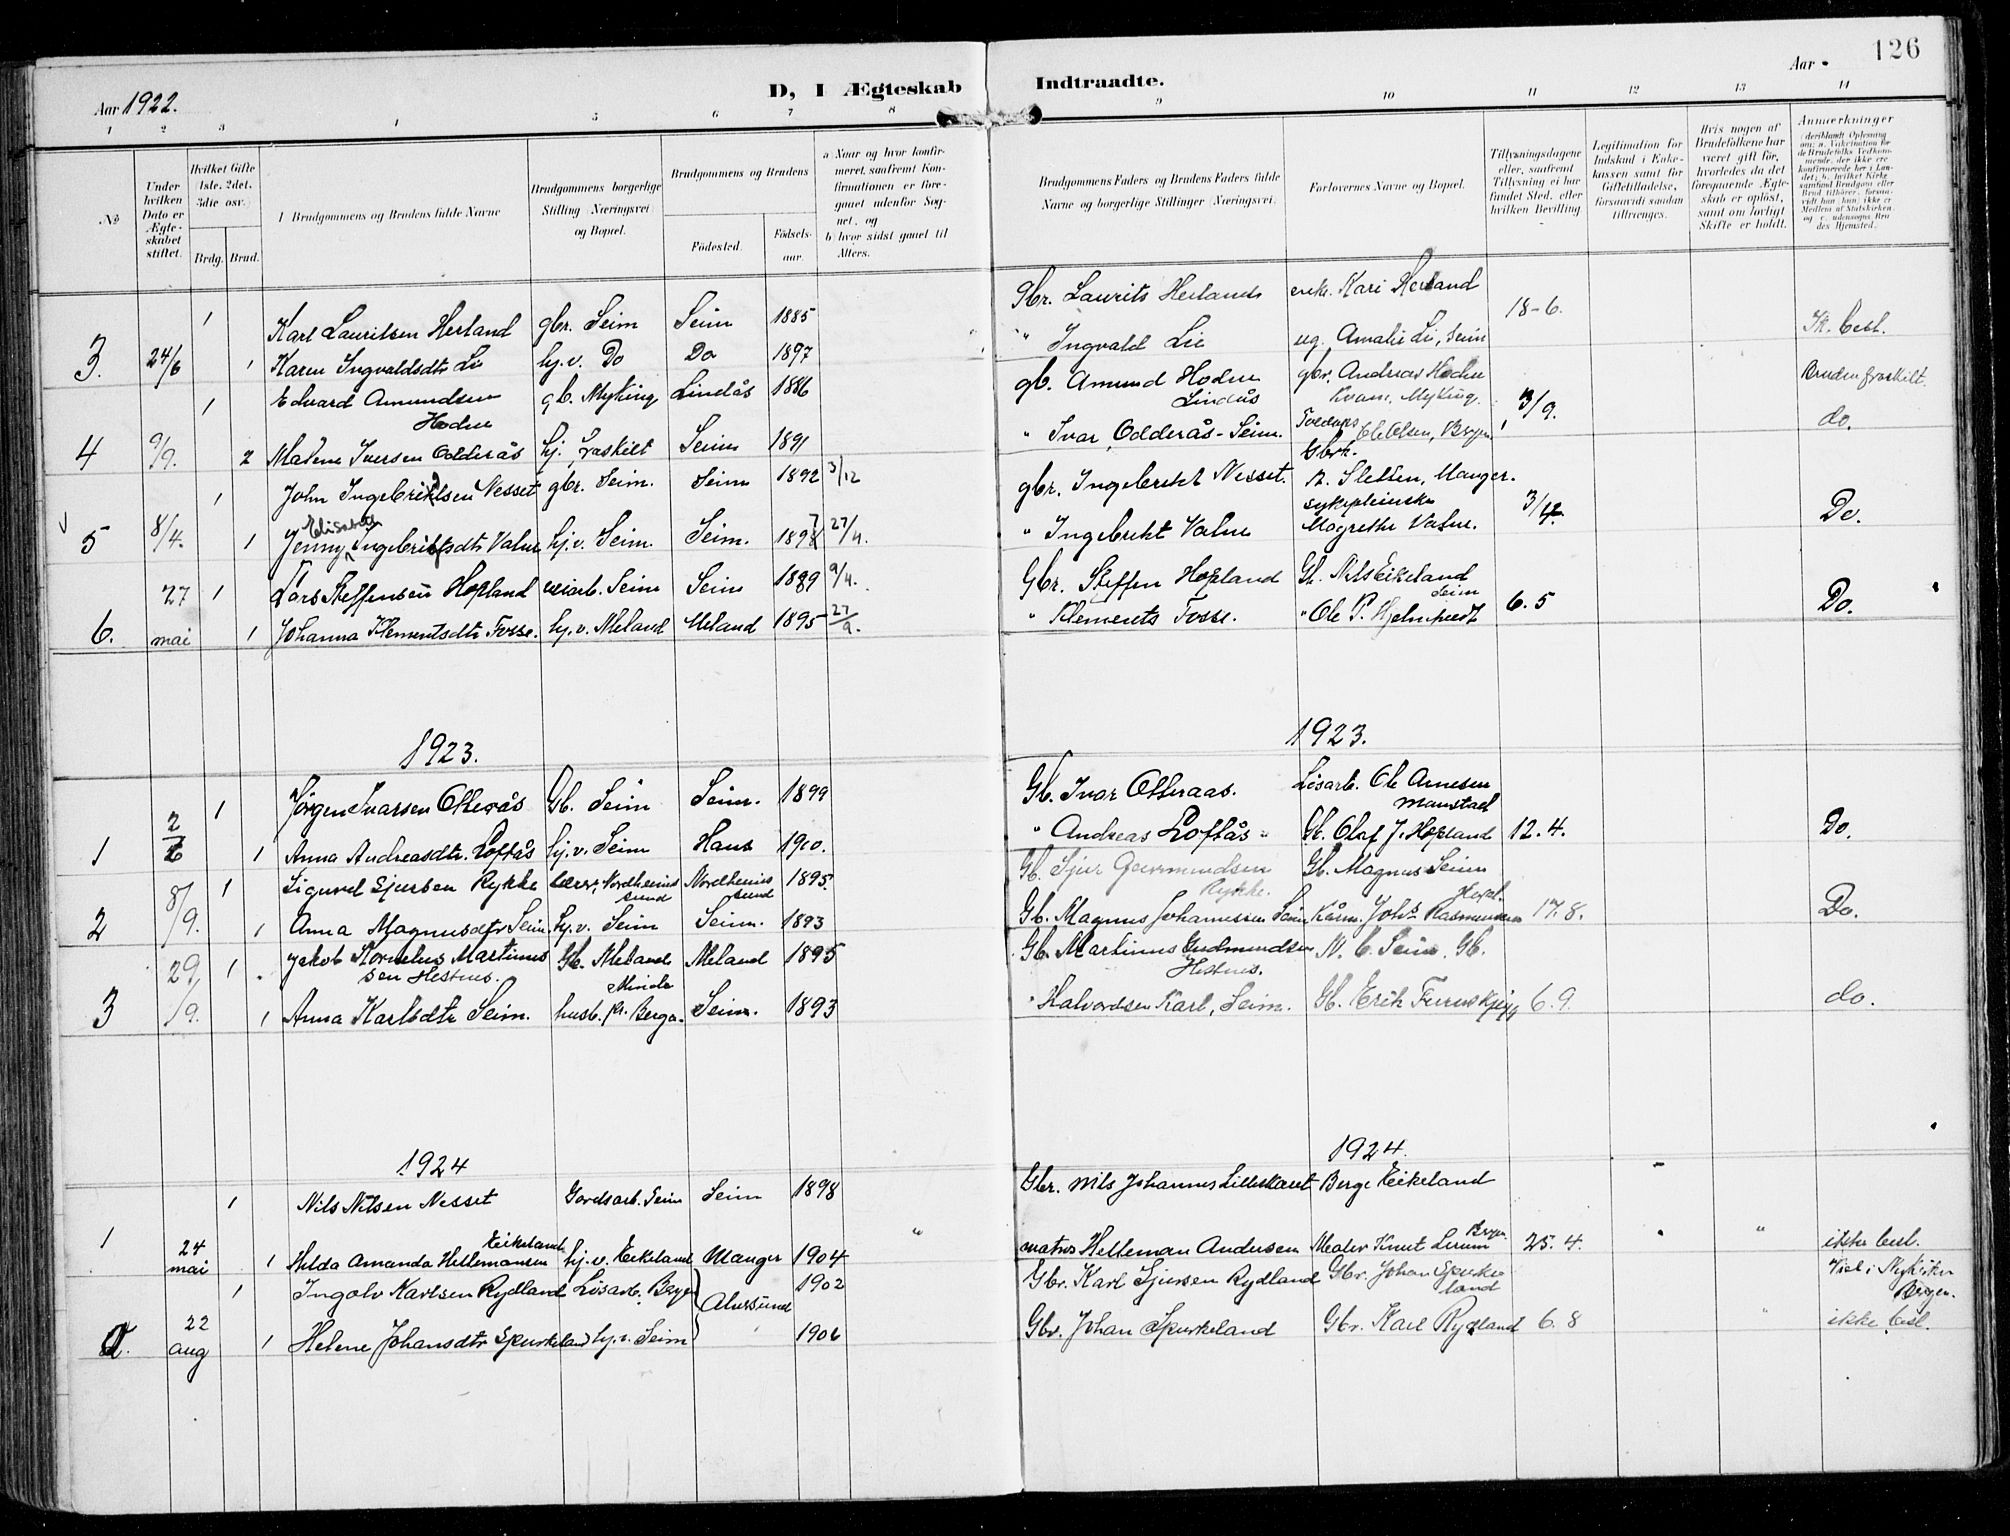 126
D, I Ægteskab Indtraadte.
Aar 1922.
Aar
1 2 3 4 5 6 7 8 9 10 11 12 13 14
No
Under hvilken Dato er Ægteskabet stiftet.
Hvilket Gifte (1ste, 2det, 3die osv.)
Brdg. Brud.
Brudgommens og Brudens fulde Navne
Brudgommens borgerlige Stilling (Næringsvei) og Bopæl.
Brudgommens og Brudens
Fødested.
Fødselsaar.
a Naar og hvor konfirmeret, saafremt Konfirmationen er foregaaet udenfor Sognet, og
b) hvor sidst gaaet til Alters.
Brudgommens Faders og Brudens Faders fulde Navne og borgerlige Stillinger (Næringsvei.
Forlovernes Navne og Bopæl.
Tillysningsdagene eller, saafremt Tillysning ei har fundet Sted, efter hvilken Bevilling
Legitimation for Indskud i Enkekassen samt for Giftetilladelse, forsaavidt saadan tiltrænges.
Hvis nogen af Brudefolkene har været gift før, hvorledes da det foregaaende Ægteskab er opløst, samt om lovligt Skifte er holdt.
Anmærkninger
1 Karl Lauritsen Herland gbr. Seim Seim 1885 gbr. Laurits Herland enke Kari Herland 18-6. Ik. besl.
3. 24/6 1 Karen Ingvaldsdtr Li hj.v. Do Do 1897 " Ingvald Lie ug. Amalie Li, Seim
1 Edvard Amundsen Hodne gb. Myking Lindås 1886 gb. Amund Hodne Lindås gbr. Andreas Hodne Kvam, Myking. 3/9. Bruden fraskilt.
4 9/9. 2 Malene Iversen Odderås hj. fraskilt Seim 1891 " Ivar Odderås - Seim. Ole Olsen, Bergen do.
1 John Ingebriktsen Nesset gbr. Seim. Seim 1892 3/12 gbr. Ingebrikt Nesset. Gbrk. A. Sletten, Manger.
5 8/4. 1 Jenny Elisabeth Ingebrigtsdtr Valne hj.v. Seim. Seim. 1897 27/4. " Ingebrikt Valne sykepleierske Magrethe Valne. 3/4. Do.
27 1 Lars Steffensen Hopland veiarb. Seim Seim 1889 9/4. Gbr. Steffen Hopland Gb. Nils Eikeland Seim
6. mai 1 Johanna Klementsdtr Fosse. hj.v. Meland Meland 1895 27/9. " Klements Fosse. " Ole P. Hjelmtvedt 6.5 Do.
1923. 1923.
1 Jørgen Ivarsen Otterås Gb. Seim Seim. 1899 Gb. Ivar Otteraas. Løsarb. Ole Arnesen Monstad
1 2/6 1 Anna Andreasdtr. Loftås hj.v. Seim Haus 1900. " Andreas Loftås " Gb. Olaf J. Hopland 12.4. Do.
1 Sigurd Sjursen Rykke Lærer, Nordheimsund Nordheimsund 1895. Gb. Sjur Geirmundsen Rykke. Gb. Magnus Seim
2 8/9. 1 Anna Magnusdtr Seim. hj.v. Seim Seim. 1893 Gb. Magnus Johannessen Seim Johs Rasmussen 17.8. Do.
29 1 Jakob Kornelus Martinussen Hestnes. Gb. Meland Meland 1895 Gb. Martinus Gudmundsen Hestnes. N. C. Seim. Gb.
3 /9. 1 Anna Karlsdtr Seim. husb. Minde pr. Bergen. Seim. 1893 " Halvordsen Karl, Seim. Gb. Erik Furuskjegg 6.9. do.
1924 1924.
1 Nils Nilsen Nesset Gardsarb. Seim Seim 1898 Gbr. Nils Johannes Lilleskaret Berge Eikeland
1 24 mai 1 Hilda Amanda Hellemansen Eikeland hj.v. Eikeland Manger 1904 " matros Helleman Andersen Maler Knut Lerum Bergen 25.4. " ikke besl.
1 Ingolv Karlsen Rydland Løsarb. Bergen Alversund 1902 Gbr. Karl Sjursen Rydland Gbr. Johan Spurkeland Viel i Nykirken Bergen.
2. 22 aug 1 Helene Johansdtr Spurkeland hj.v. Seim 1906 Gbr. Johan Spurkeland Gbr. Karl Rydland 6.8 " ikke besl.